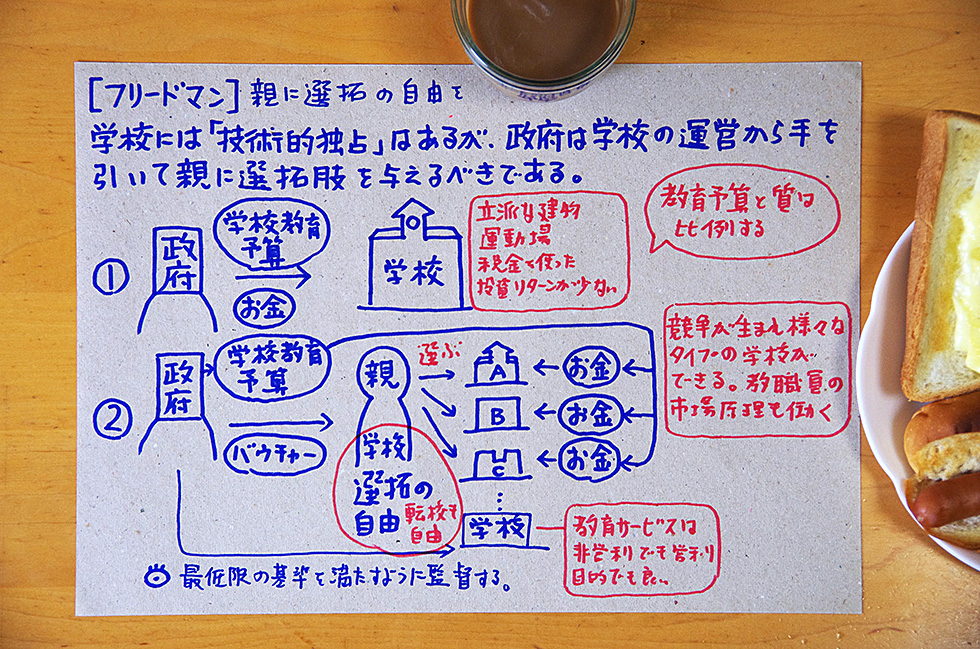 [フリードマン] 親に選拓の自由を
学校には「技術的独占」はあるが、政府は学校の運営から手を
引いて親に選拓肢を与えるべきである。
①
政府
学校教育
予算
お金
学校
立派な建物
運動場
税金を使った
投資リターンが少ない
教育予算と質は
比例する
②
政府
学校教育
予算
バウチャー
親
学校
選拓の
自由
転校も
自由
選ぶ
A
お金
B
お金
C
お金
学校
競争が生まれ様々な
タイプの学校が
できる。教職員の
市場原理も働く
教育サービスは
非営利でも営利
目的でも良い
最低限の基準を満たすように監督する。